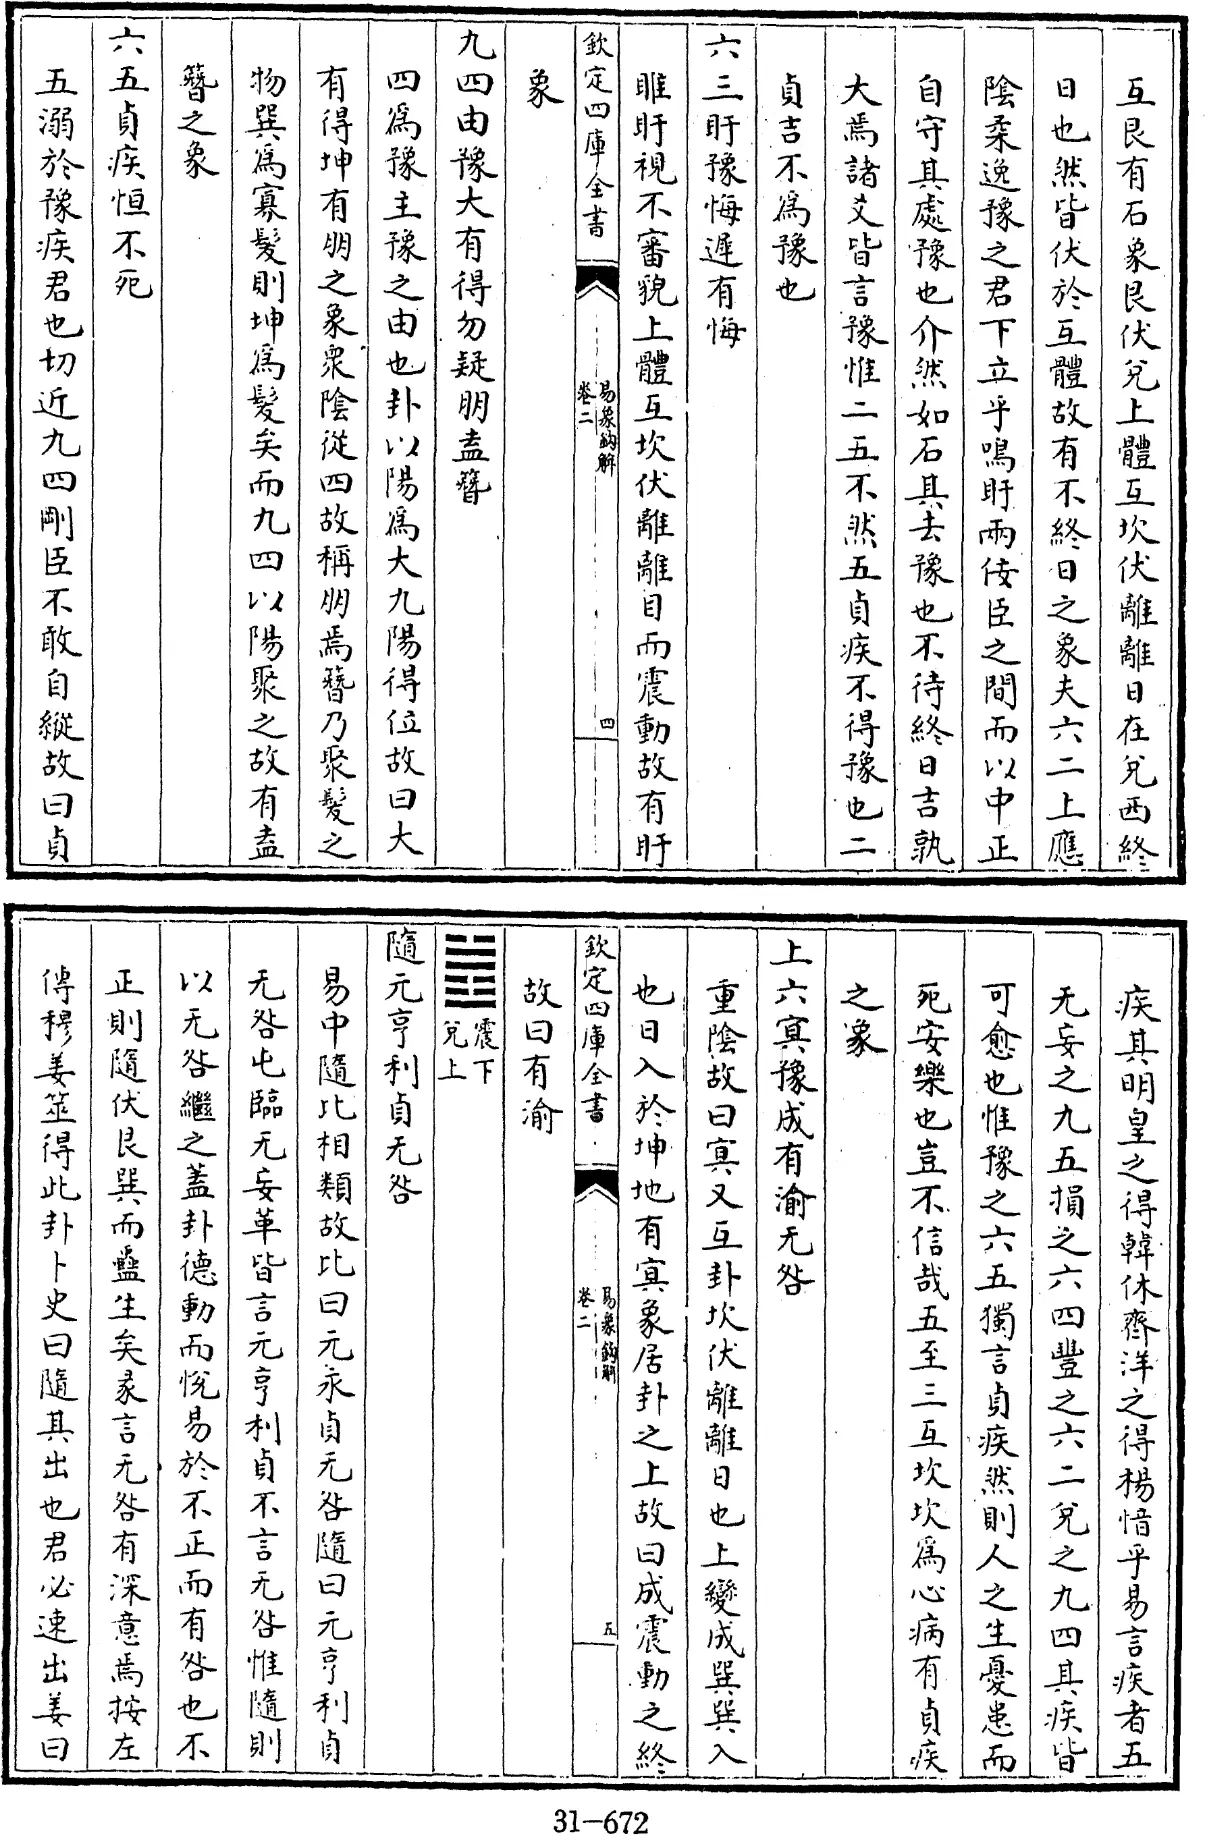 互艮有石象艮伏兌上體互坎伏離離日在兌西終
日也然皆伏於互體故有不終日之象夫六二上應
陰柔逸豫之君下立乎鳴盱兩佞臣之間而以中正
自守其處豫也介然如石其去豫也不待終日吉孰
大焉諸爻皆言豫惟二五不然五貞疾不得豫也二
貞吉不為豫也
六三盱豫悔遲有悔
睢盱視不審貌上體互坎伏離離目而震動故有盱
欽定四庫全書
易象鈎解
卷二
四
象
九四由豫大有得勿疑朋盍簪
四為豫主豫之由也卦以陽為大九陽得位故曰大
有得坤有朋之象衆陰從四故稱朋焉簪乃聚髮之
物巽為寡髮則坤為髮矣而九四以陽聚之故有盍
簪之象
六五貞疾恒不死
五溺於豫疾君也切近九四剛臣不敢自縱故曰貞
疾其明皇之得韓休齊洋之得楊愔乎易言疾者五
无妄之九五損之六四豐之六二兌之九四其疾皆
可愈也惟豫之六五獨言貞疾然則人之生憂患而
死安樂也豈不信哉五至三互坎坎為心病有貞疾
之象
上六冥豫成有渝无咎
重陰故曰冥又互卦坎伏離離日也上變成巽巽入
也日入於坤地有冥象居卦之上故曰成震動之終
欽定四庫全書
易象鈎解
卷二
五
故曰有渝
䷐震下
兌上
隨元亨利貞无咎
易中隨比相類故比曰元永貞无咎隨曰元亨利貞
无咎屯臨无妄革皆言元亨利貞不言无咎惟隨則
以无咎繼之蓋卦德動而悅易於不正而有咎也不
正則隨伏艮巽而蠱生矣彖言无咎有深意焉按左
傳穆姜筮得此卦卜史曰隨其出也君必速出姜曰
31-672